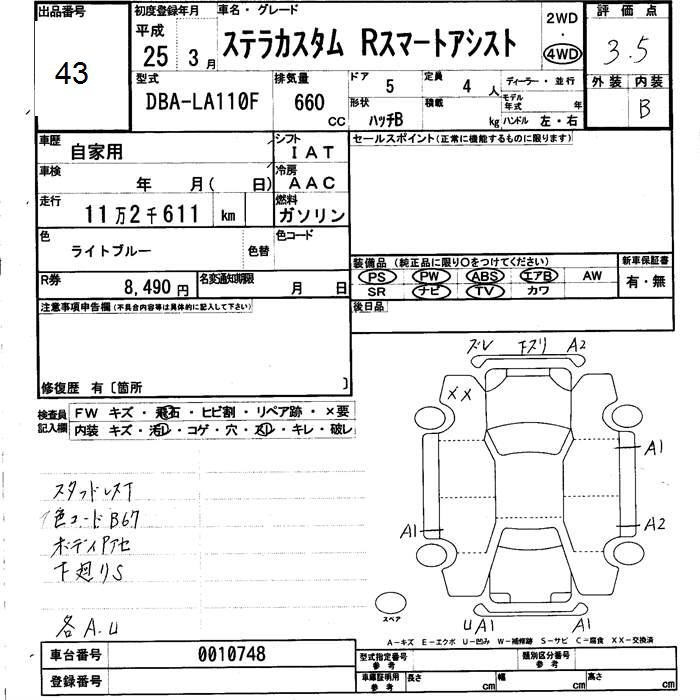 出品番号
43
初度登録年月
平成
25 3月
車名・グレード
ステラカスタム Rスマートアシスト
2WD
・
4WD
評価点
3.5
外装 内装
B
型式
DBA-LA110F
排気量
660
cc
ドア
5
定員
4人
形状
ハッチB
積載
kg
ディーラー・並行
モデル年式 年
ハンドル 左・右
車歴
自家用
シフト
IAT
車検
年 月( 日)
冷房
AAC
走行
11万2千611 km
燃料
ガソリン
色
ライトブルー
色替
色コード
R券
8,490円
名変通知期限
月 日
セールスポイント(正常に機能するものに限ります)
装備品 (純正品に限り○をつけてください)
PS PW ABS エアB AW
SR ナビ TV カワ
新車保証書
有・無
後日品
注意事項申告欄(不具合内容等は具体的に記入して下さい)
修復歴 有〔箇所 〕
検査員
記入欄
FW キズ・飛石・ヒビ割・リペア跡・×要
内装 キズ・汚レ・コゲ・穴・スレ・キレ・破レ
スタッドレスT
色コードB67
ボディPアセ
下廻りS
各A.U
ズレ 下ズリ A2
XX
A1
A1
A2
UA1 A1
スペア
A-キズ E-エクボ U-凹み W-補修跡 S-サビ C-腐食 XX-交換済
車台番号
0010748
登録番号
型式指定番号
参考
類別区分番号
参考
車庫証明用
参考
長さ cm
幅 cm
高さ cm